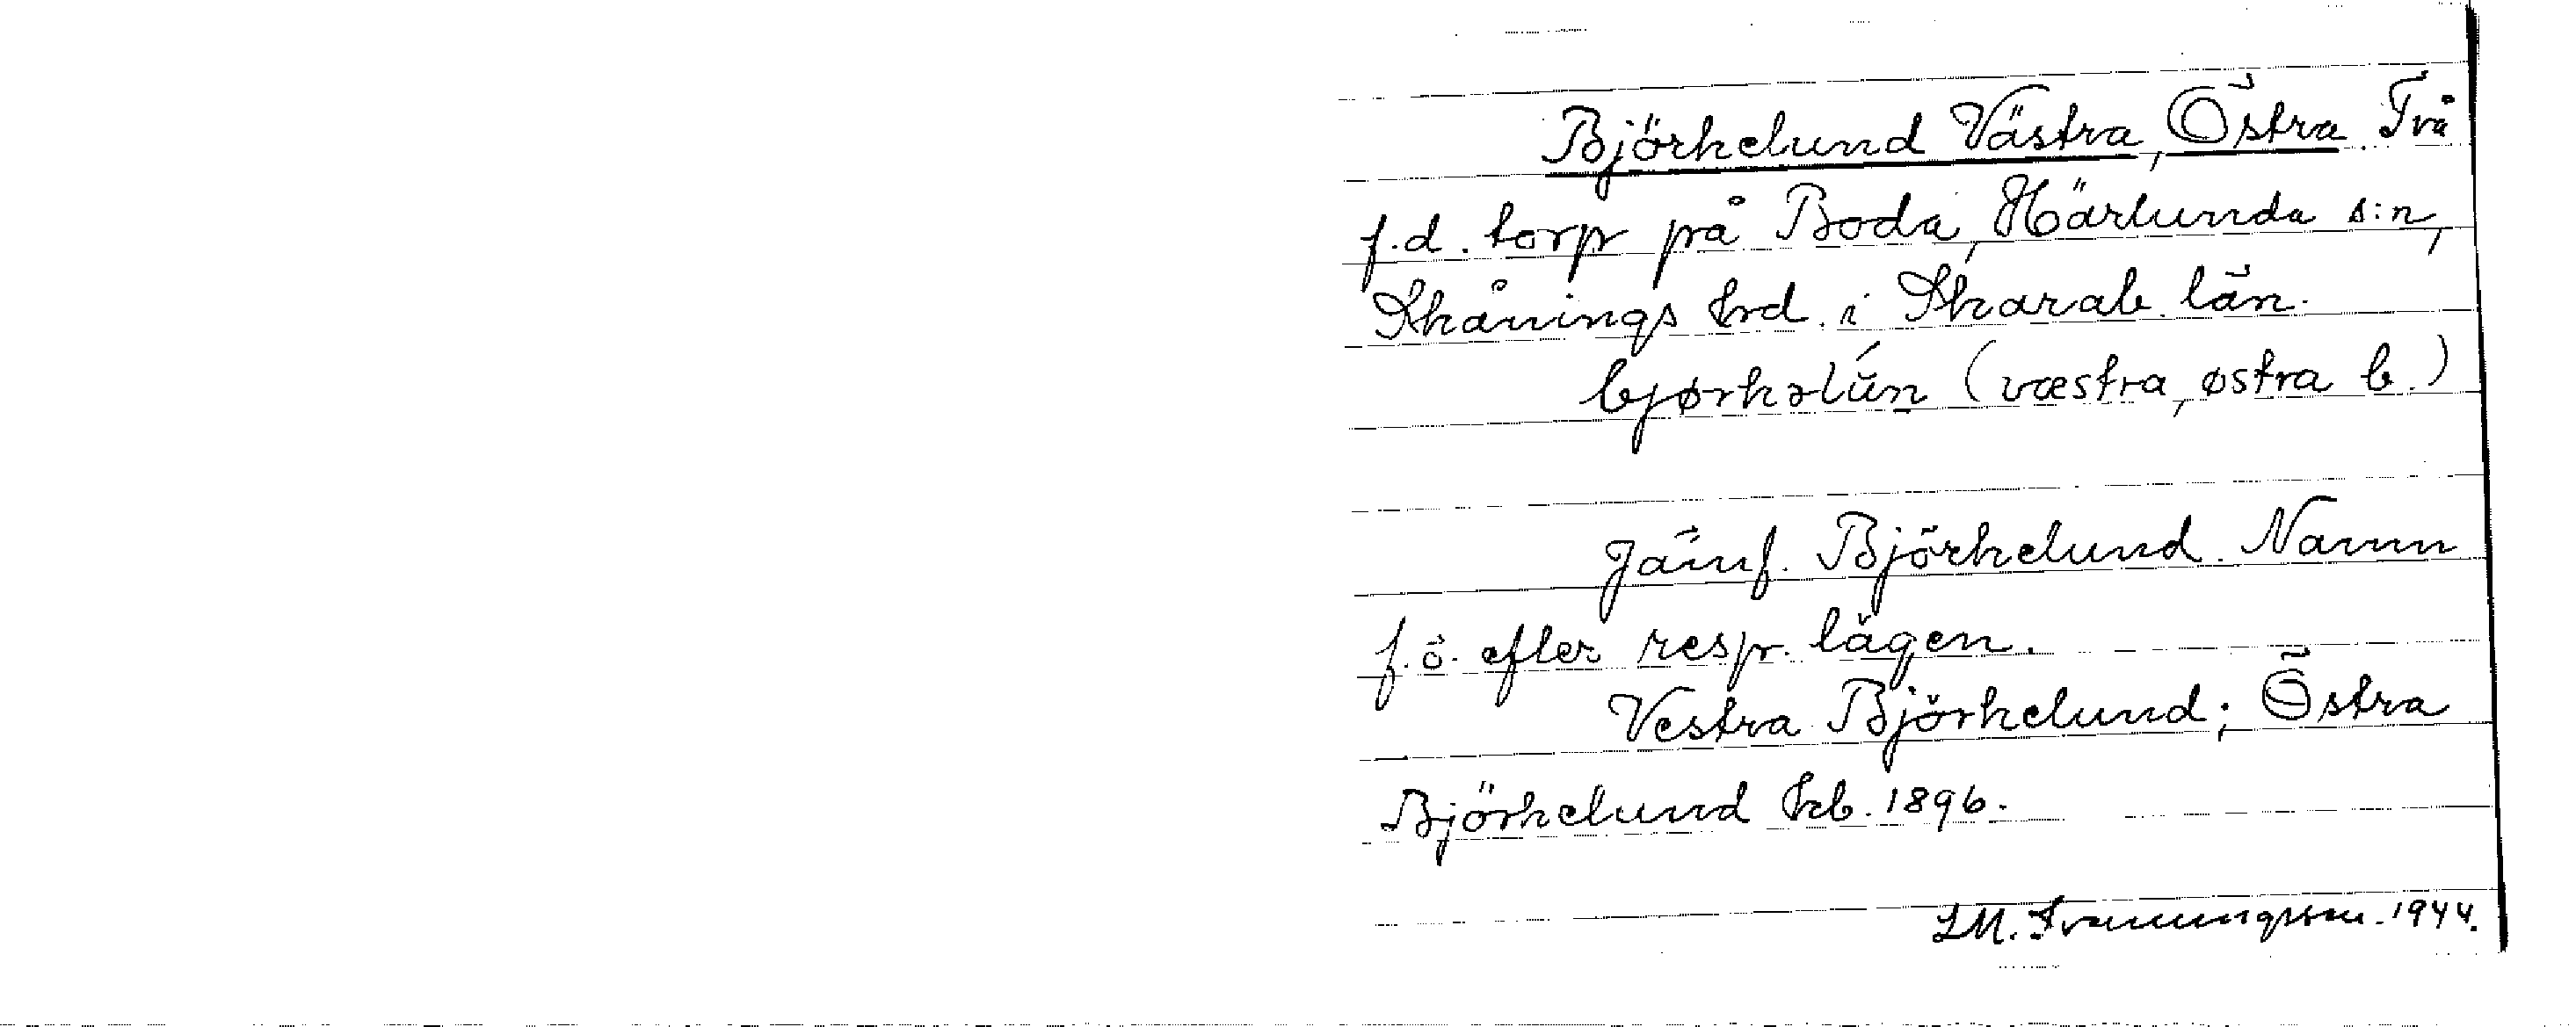 Björkelund Västra, Östra. Två
f.d. torp på Boda, Härlunda s:n,
Skånings hrd. i Skarab. län.
bjørkəlún (væstra, østra b.)
Jämf. Björkelund. Namn
f.ö. efter resp. lägen.
Vestra Björkelund; Östra
Björkelund hb. 1896.
1944.